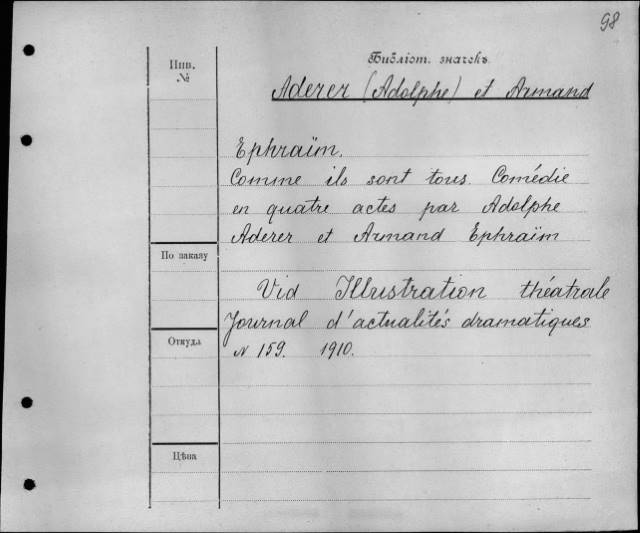 98
Библіот. значекъ
Инв.
№
Aderer (Adolphe) et Armand
Ephraïm.
Comme ils sont tous. Comédie
en quatre actes par Adolphe
Aderer et Armand Ephraïm
По заказу
Vid Illustration théatrale
Journal d'actualités dramatiques
Откуда
N 159. 1910.
Цѣна